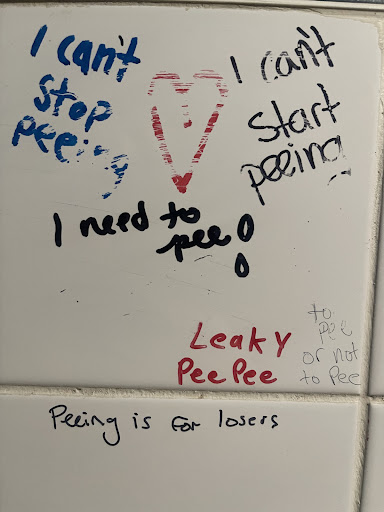 I can't
stop
peeing
I can't
start
peeing
I need to
pee!
Leaky
PeePee
to
pee
or not
to pee
Peeing is for losers